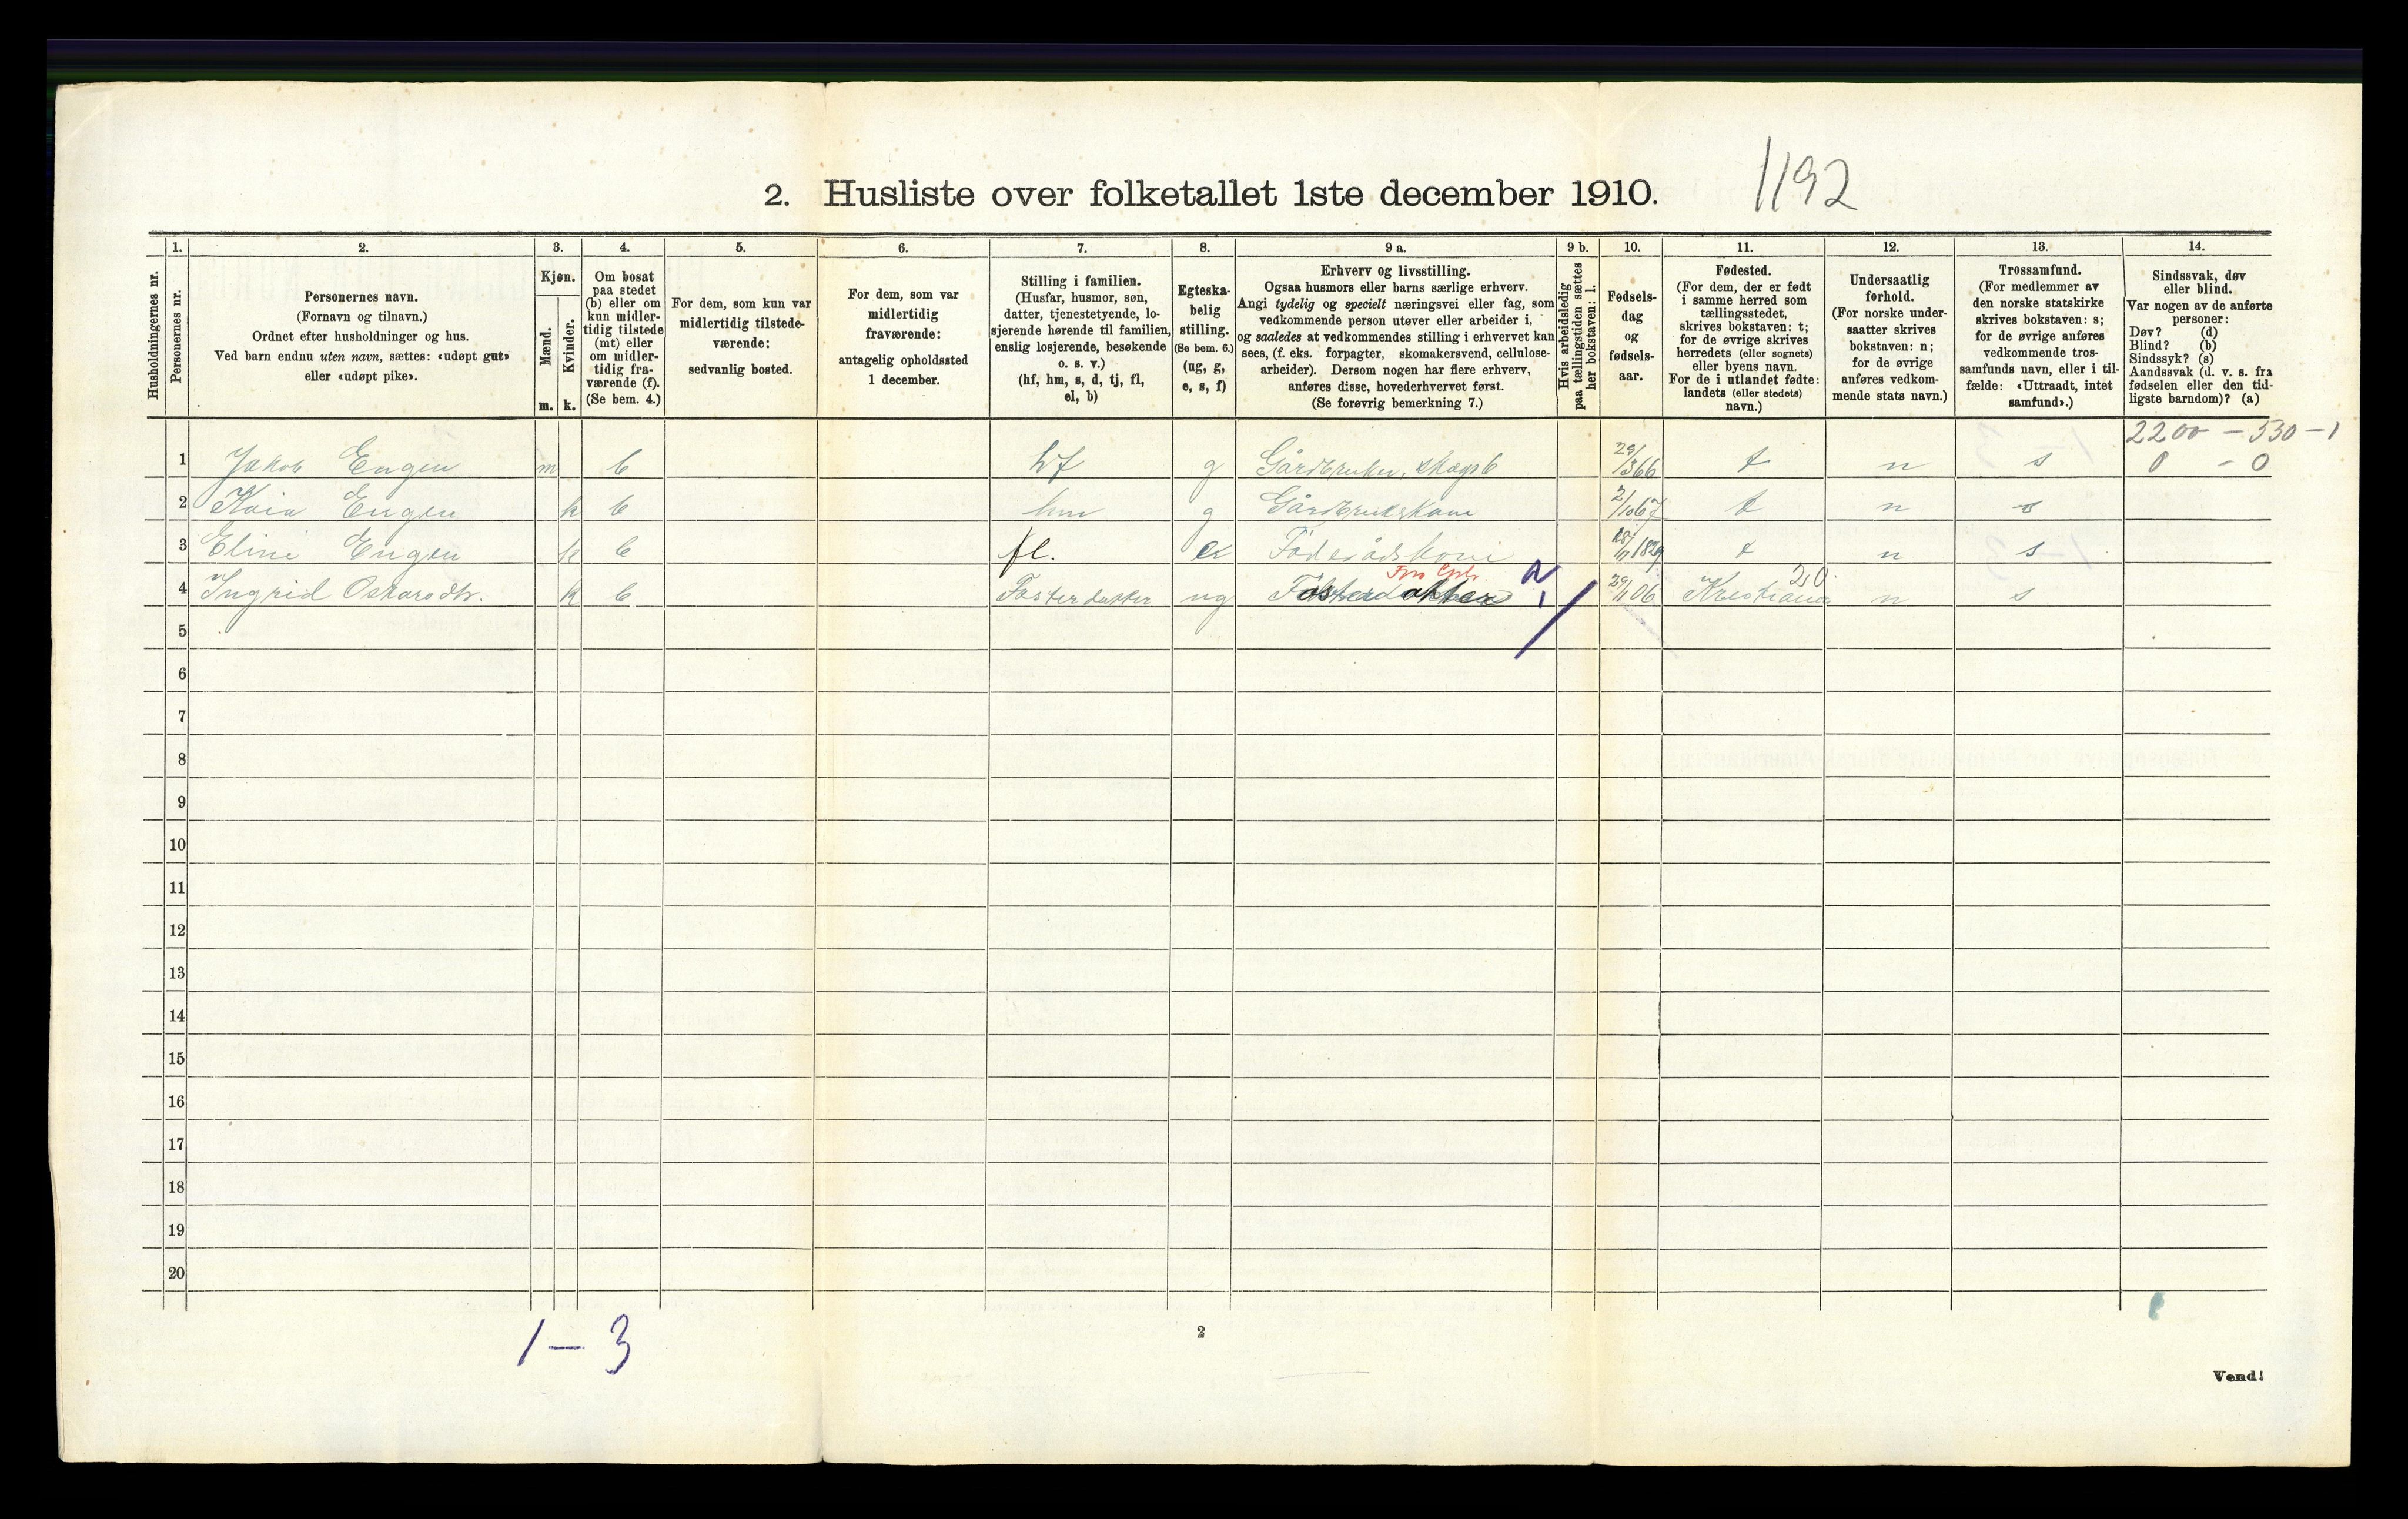 2. Husliste over folketallet 1ste december 1910. 1192
Husholdningernes nr.
1. 2. 3. 4. 5. 6. 7. 8. 9 a. 9 b. 10. 11. 12. 13. 14.
Personernes nr.
Personernes navn.
(Fornavn og tilnavn.)
Ordnet efter husholdninger og hus.
Ved barn endnu uten navn, sættes: «udøpt gut»
eller «udøpt pike».
Kjøn.
Mænd.
Kvinder.
m. k.
Om bosat
paa stedet
(b) eller om
kun midler-
tidig tilstede
(mt) eller
om midler-
tidig fra-
værende (f).
(Se bem. 4.)
For dem, som kun var
midlertidig tilstede-
værende:
sedvanlig bosted.
For dem, som var
midlertidig
fraværende:
antagelig opholdssted
1 december.
Stilling i familien.
(Husfar, husmor, søn,
datter, tjenestetyende, lo-
sjerende hørende til familien,
enslig losjerende, besøkende
o. s. v.)
(hf, hm, s, d, tj, fl,
el, b)
Egteska-
belig
stilling.
(Se bem. 6.)
(ug, g,
e, s, f)
Erhverv og livsstilling.
Ogsaa husmors eller barns særlige erhverv.
Angi tydelig og specielt næringsvei eller fag, som
vedkommende person utøver eller arbeider i,
og saaledes at vedkommendes stilling i erhvervet kan
sees, (f. eks. forpagter, skomakersvend, cellulose-
arbeider). Dersom nogen har flere erhverv,
anføres disse, hovederhvervet først.
(Se forøvrig bemerkning 7.)
Hvis arbeidsledig
paa tællingstiden sættes
her bokstaven: l.
Fødsels-
dag
og
fødsels-
aar.
Fødested.
(For dem, der er født
i samme herred som
tællingsstedet,
skrives bokstaven: t;
for de øvrige skrives
herredets (eller sognets)
eller byens navn.
For de i utlandet fødte:
landets (eller stedets)
navn.)
Undersaatlig
forhold.
(For norske under-
saatter skrives
bokstaven: n;
for de øvrige
anføres vedkom-
mende stats navn.)
Trossamfund.
(For medlemmer av
den norske statskirke
skrives bokstaven: s;
for de øvrige anføres
vedkommende tros-
samfunds navn, eller i til-
fælde: «Uttraadt, intet
samfund».)
Sindssvak, døv
eller blind.
Var nogen av de anførte
personer:
Døv? (d)
Blind? (b)
Sindssyk? (s)
Aandssvak (d. v. s. fra
fødselen eller den tid-
ligste barndom)? (a)
2200 - 530 - 1
1 Jakob Engen m b hf g Gårdbruker, skogsb 29/3 66 t n s 0 - 0
2 Kaia Engen k b hm g Gårdbrukskone 2/10 67 t n s
3 Eline Engen k b fl. e Föderådskone 1829 t n s
4 Ingrid Oskarsdtr. k b Fosterdatter ug Fosterdatter 29/11 06 Kristiania n s
20.
5
6
7
8
9
10
11
12
13
14
15
16
17
18
19
20
1 - 3
2
Vend!